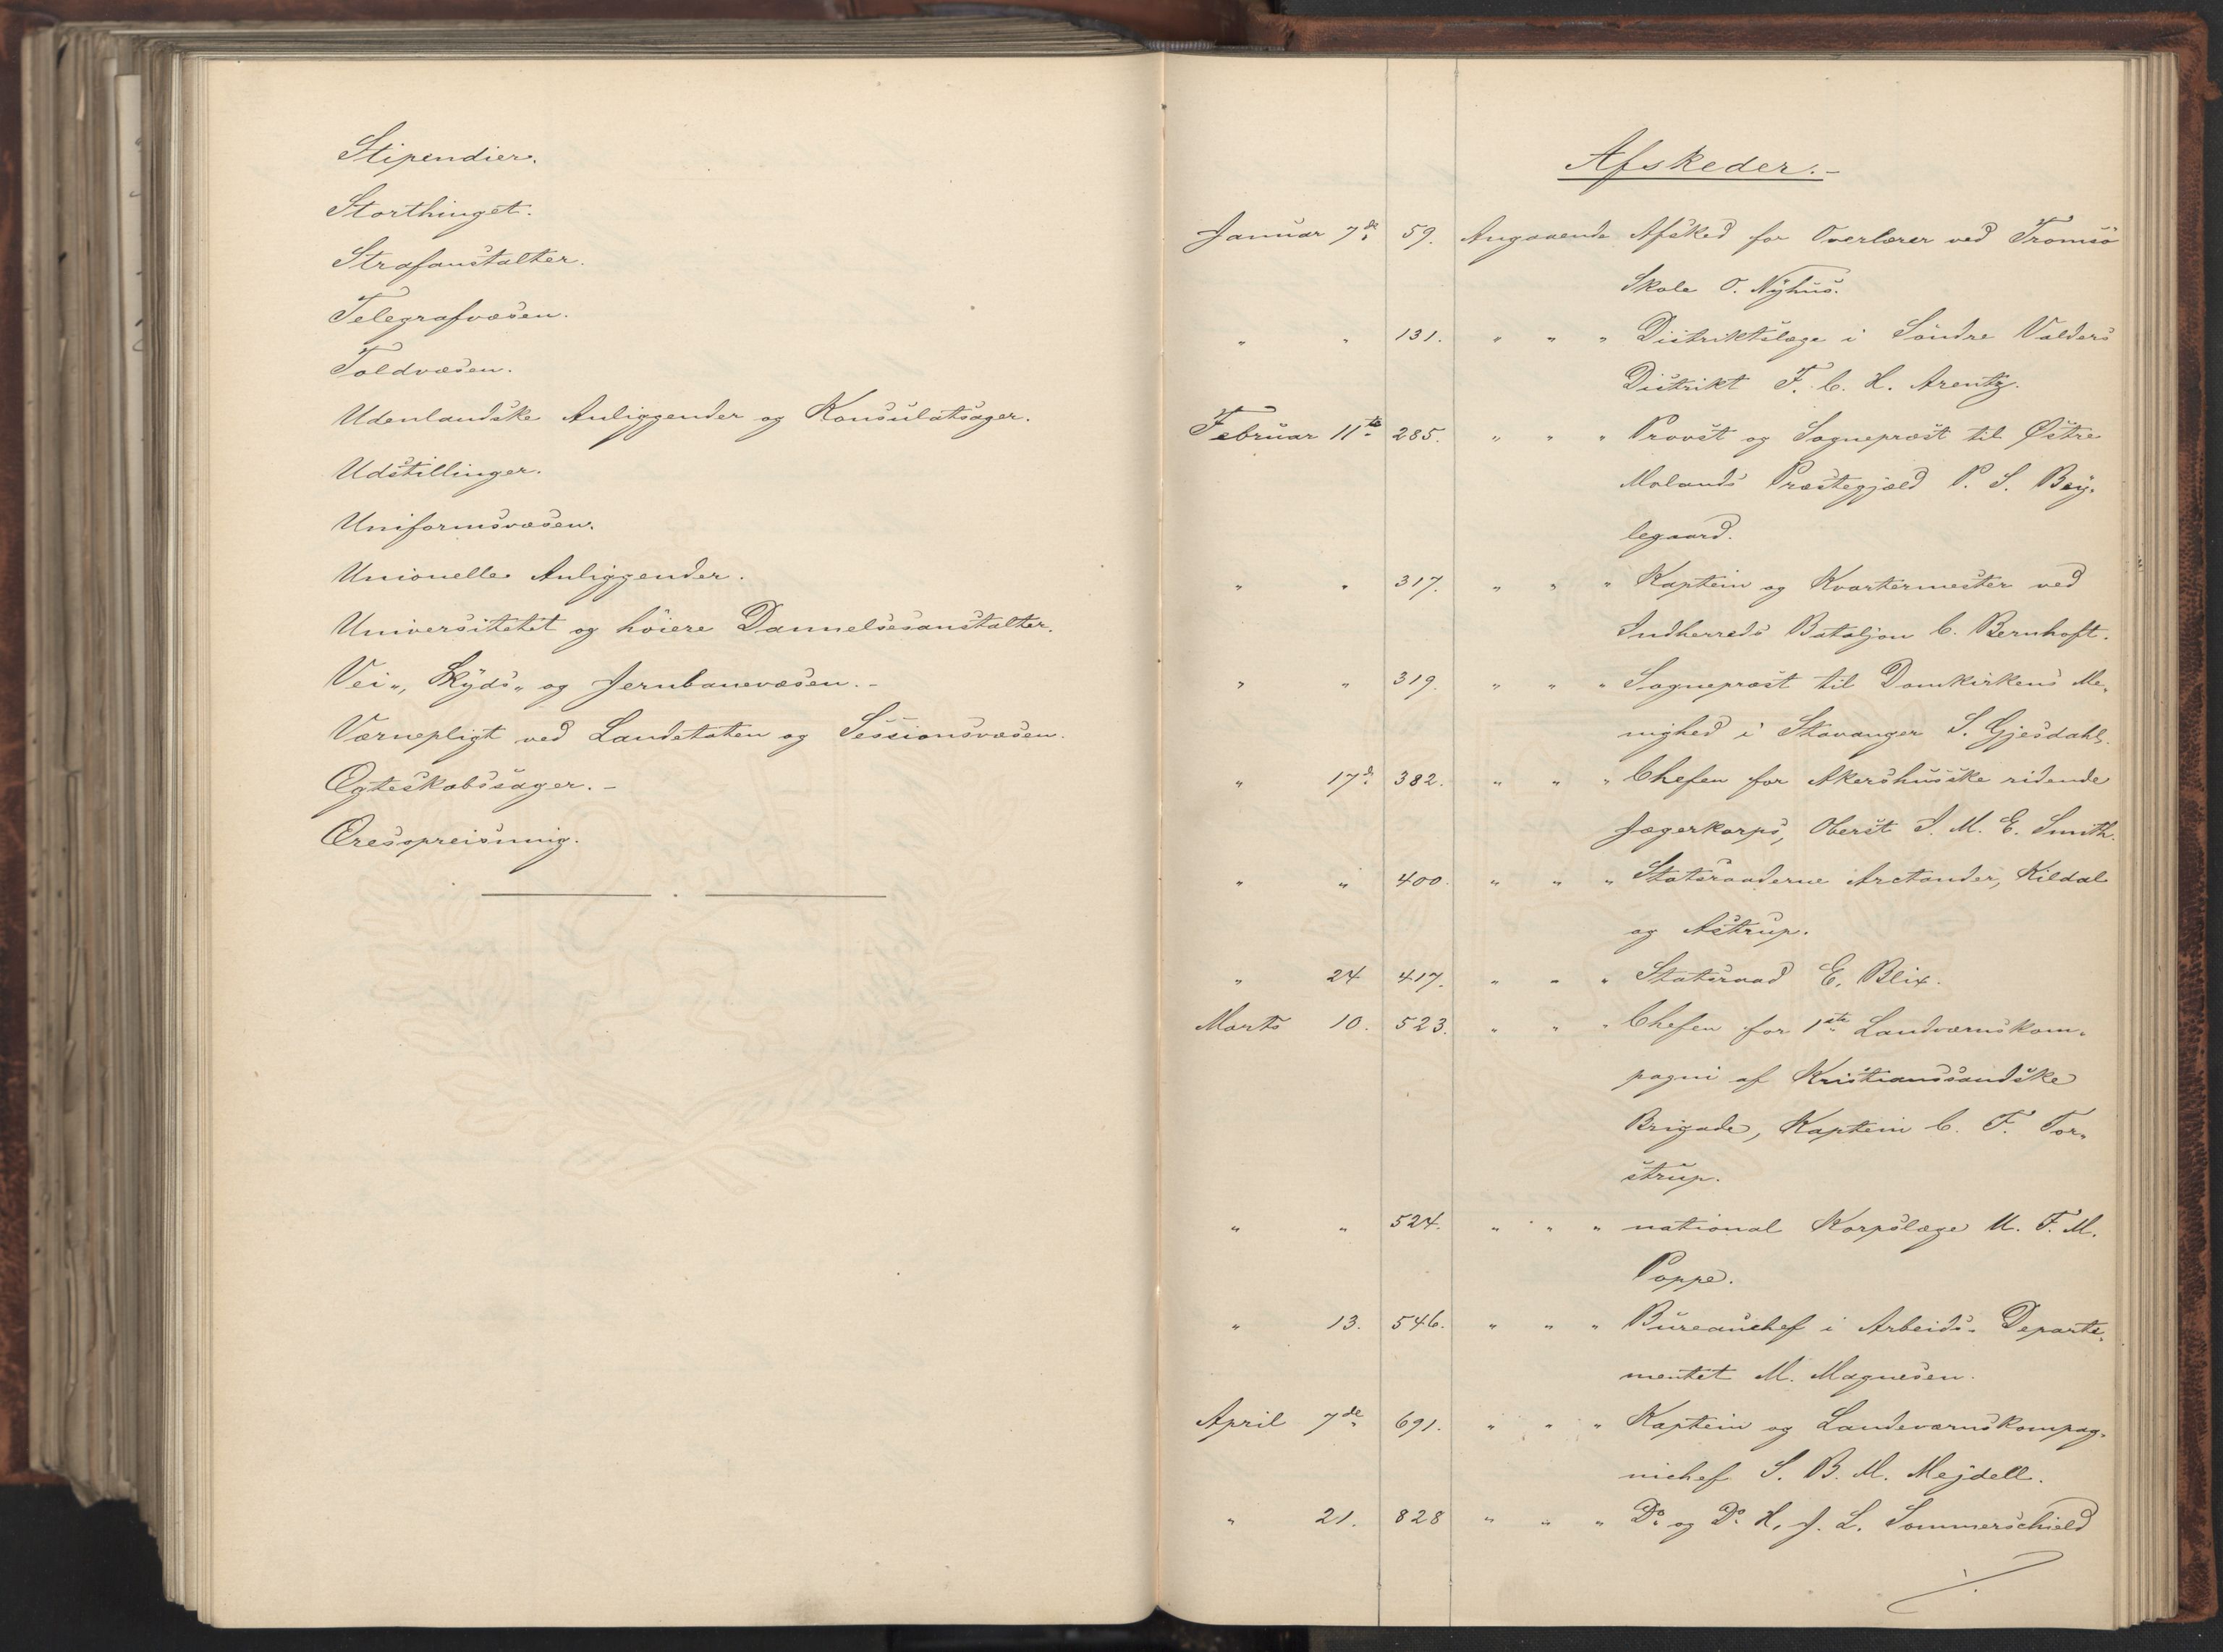 Stipendier.
Storthinget.
Strafanstalter.
Telegrafvæsen.
Toldvæsen.
Udenlandske Anliggender og Konsulatsager.
Udstillinger.
Uniformsvæsen.
Unionelle Anliggender.
Universitetet og høiere Dannelsesanstalter.
Vei„, Skyds„ og Jernbanevæsen. -
Værnepligt ved Landetaten og Sessionsvæsen.
Ægteskabssager. -
Æresopreisning.
Afskeder. -
Januar 7de 59. Angaaende Afsked for Overlærer ved Tromsø
Skole O. Nyhus.
" " 131. " " " Distriktslæge i Søndre Valders
Distrikt F. C. H. Arentz.
Februar 11te 285. " " " Provst og Sogneprest til Østre
Molands Præstegjæld P. S. Bøy-
legaard.
" " 317. " " " Kaptein og Kvartermester ved
Indherreds Bataljon C. Bernhoft.
" " 319. " " " Sognepræst til Domkirkens Me-
nighed i Stavanger S. Gjesdahl.
" 17de 382. " " " Chefen for Akershusske ridende
Jægerkorps, Oberst J. M. E. Smith.
" " 400. " " " Statsraaderne Arctander, Kildal
og Astrup.
" 24 417. " " " Statsraad E. Blix.
Marts 10. 523. " " " Chefen for 1ste Landværnskom-
pagni af Kristianssandske
Brigade, Kaptein C. F. Tor-
strup.
" " 524. " " " national Korpslæge U. F. M.
Poppe.
" 13. 546. " " " Bureauchef i Arbeids- Departe-
mentet M. Magnesen.
April 7de 691. " " " Kaptein og Landeværnskompag-
nichef S. B. M. Mejdell.
" 21. 828 " " " Do. og Do. H. J. L. Sommerschield